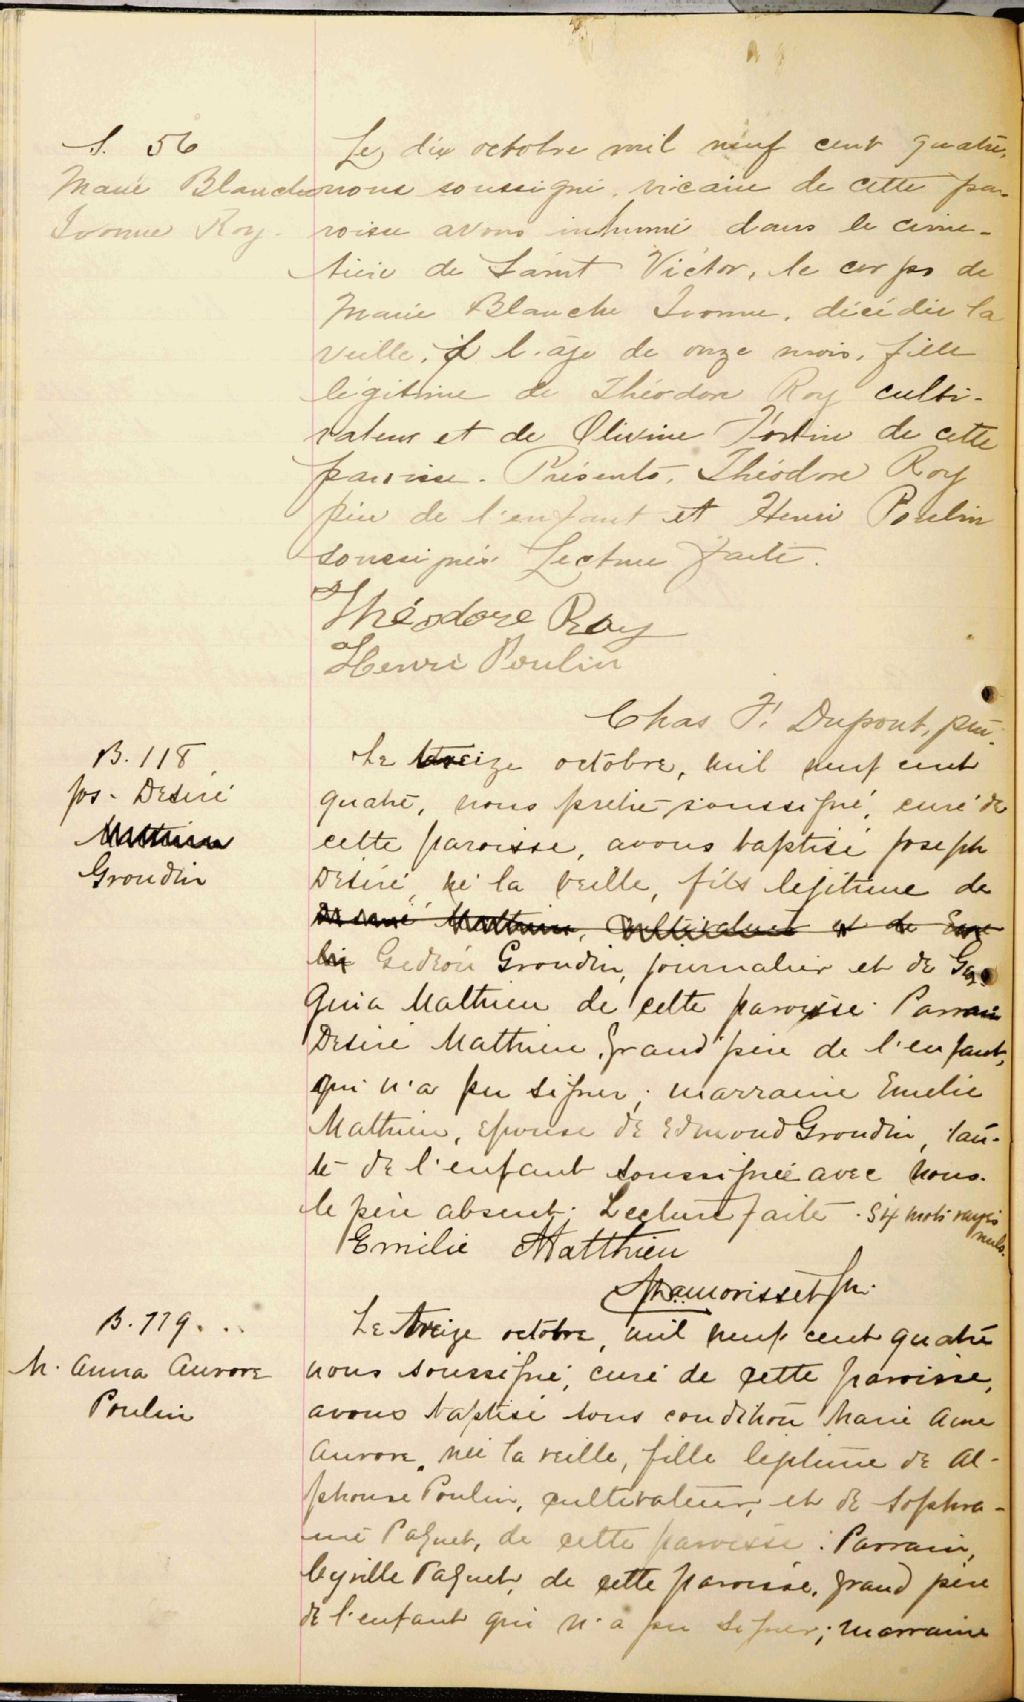 S. 56
Marie Blanche
Ivonne Roy.
Le dix octobre mil neuf cent quatre,
nous soussigné, vicaire de cette pa-
roisse avons inhumé dans le cime-
tière de Saint Victor, le corps de
Marie Blanche Ivonne, décédée la
veille, à l'âge de onze mois, fille
légitime de Théodore Roy culti-
vateur et de Olivine Fortin de cette
paroisse. Présents, Théodore Roy
père de l'enfant et Henri Poulin
soussignés. Lecture faite.
Théodore Roy
Henri Poulin
Chas F. Dupont, ptre.
B. 118
Jos. Desiré
Mathieu
Groudin
Le treize octobre, mil neuf cent
quatre, nous prêtre soussigné, curé de
cette paroisse, avons baptisé Joseph
Desiré, né la veille, fils legitime de
Desiré Mathieu, cultivateur et de
Gedéon Groudin, journalier et de Geor
gina Mathieu de cette paroisse. Parrain
Desiré Mathieu, grand père de l'enfant,
qui n'a pu signer; marraine Emelie
Mathieu, epouse de Edmond Groudin, tan-
te de l'enfant soussignée avec nous.
le père absent. Lecture faite. Six mots rayés
nuls.
Emilie Matthieu
morisset ptr.
B. 119...
M. Anna Aurore
Poulin
Le treize octobre, mil neuf cent quatre
nous soussigné, curé de cette paroisse,
avons baptisé sous condition Marie Anne
Aurore, née la veille, fille legitime de Al-
phonse Poulin, cultivateur, et de Sophro-
nie Paquet, de cette paroisse. Parrain,
Cyrille Paquet, de cette paroisse, grand père
de l'enfant qui n'a pu signer; marraine